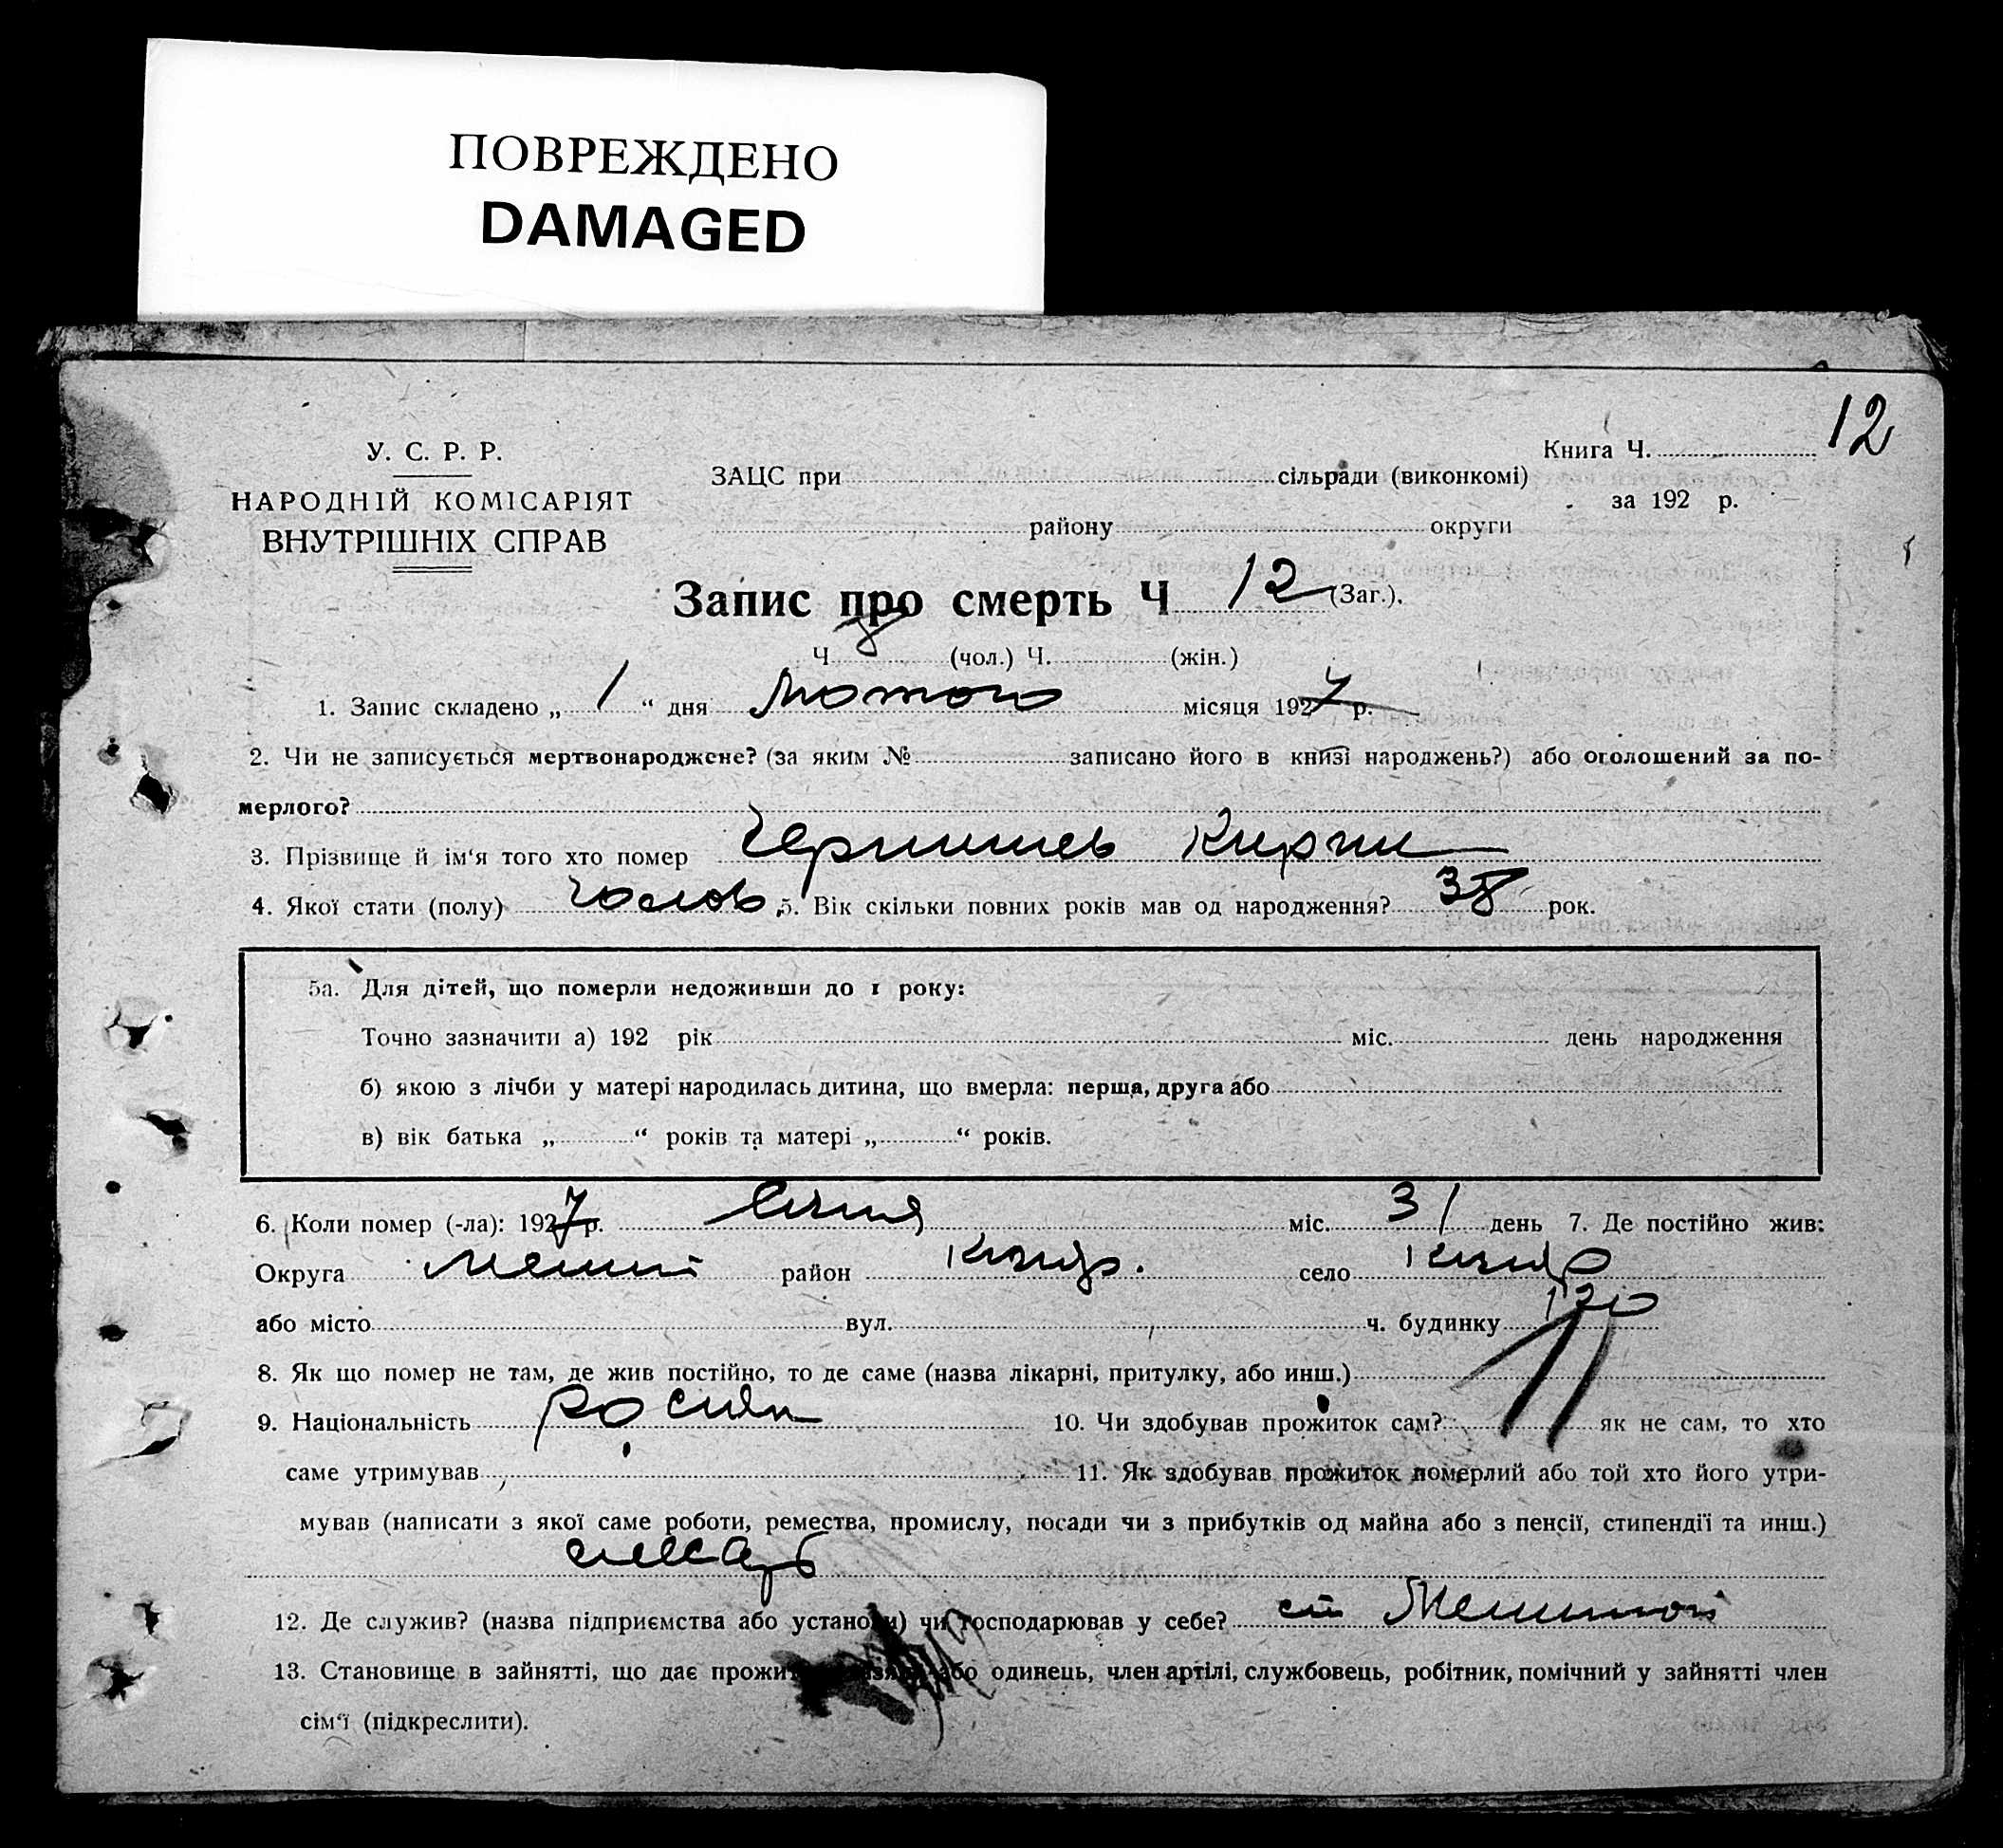 ПОВРЕЖДЕНО
DAMAGED
12
У. С. Р. Р.
НАРОДНІЙ КОМІСАРІЯТ
ВНУТРІШНІХ СПРАВ
ЗАЦС при сільради (виконкомі)
району округи
Книга Ч.
за 192 р.
Запис про смерть Ч 12 (Заг.).
Ч 8 (чол.) Ч. (жін.)
1. Запис складено „ 1 “ дня Лютого місяця 1927 р.
2. Чи не записується мертвонароджене? (за яким № записано його в книзі народжень?) або оголошений за по-
мерлого?
3. Прізвище й ім'я того хто помер
4. Якої стати (полу) чолов 5. Вік скільки повних років мав од народження? 38 рок.
5а. Для дітей, що померли недоживши до 1 року:
Точно зазначити а) 192 рік міс. день народження
б) якою з лічби у матері народилась дитина, що вмерла: перша, друга або
в) вік батька „ “ років та матері „ “ років.
6. Коли помер (-ла): 1927 р. Січня міс. 31 день 7. Де постійно жив:
Округа район село
або місто вул. ч. будинку 120
8. Як що помер не там, де жив постійно, то де саме (назва лікарні, притулку, або инш.)
9. Національність росиян 10. Чи здобував прожиток сам? як не сам, то хто
саме утримував 11. Як здобував прожиток померлий або той хто його утри-
мував (написати з якої саме роботи, ремества, промислу, посади чи з прибутків од майна або з пенсії, стипендії та инш.)
12. Де служив? (назва підприємства або установи) чи господарював у себе? ст
13. Становище в зайнятті, що дає прожиток або одинець, член артілі, службовець, робітник, помічний у зайнятті член
сім'ї (підкреслити).